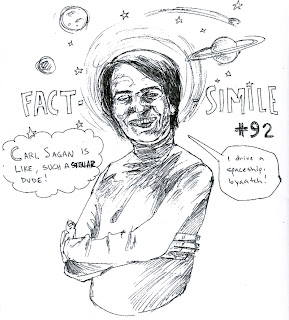 FACT-SIMILE
#92
CARL SAGAN IS
LIKE, SUCH A STELLAR
DUDE!
I drive a
spaceship,
byaatch!